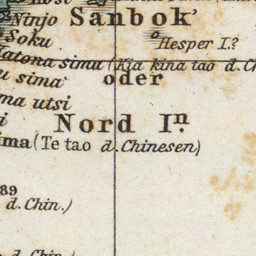 Ninjo
Sanbok'
Soku
Hesper I.?
atona sima (Kia kina tao d. Ch
u sima
oder
ma utsi
Nord In.
ima (Te tao d. Chinesen)
89
d. Chin.)
d. Chin.)